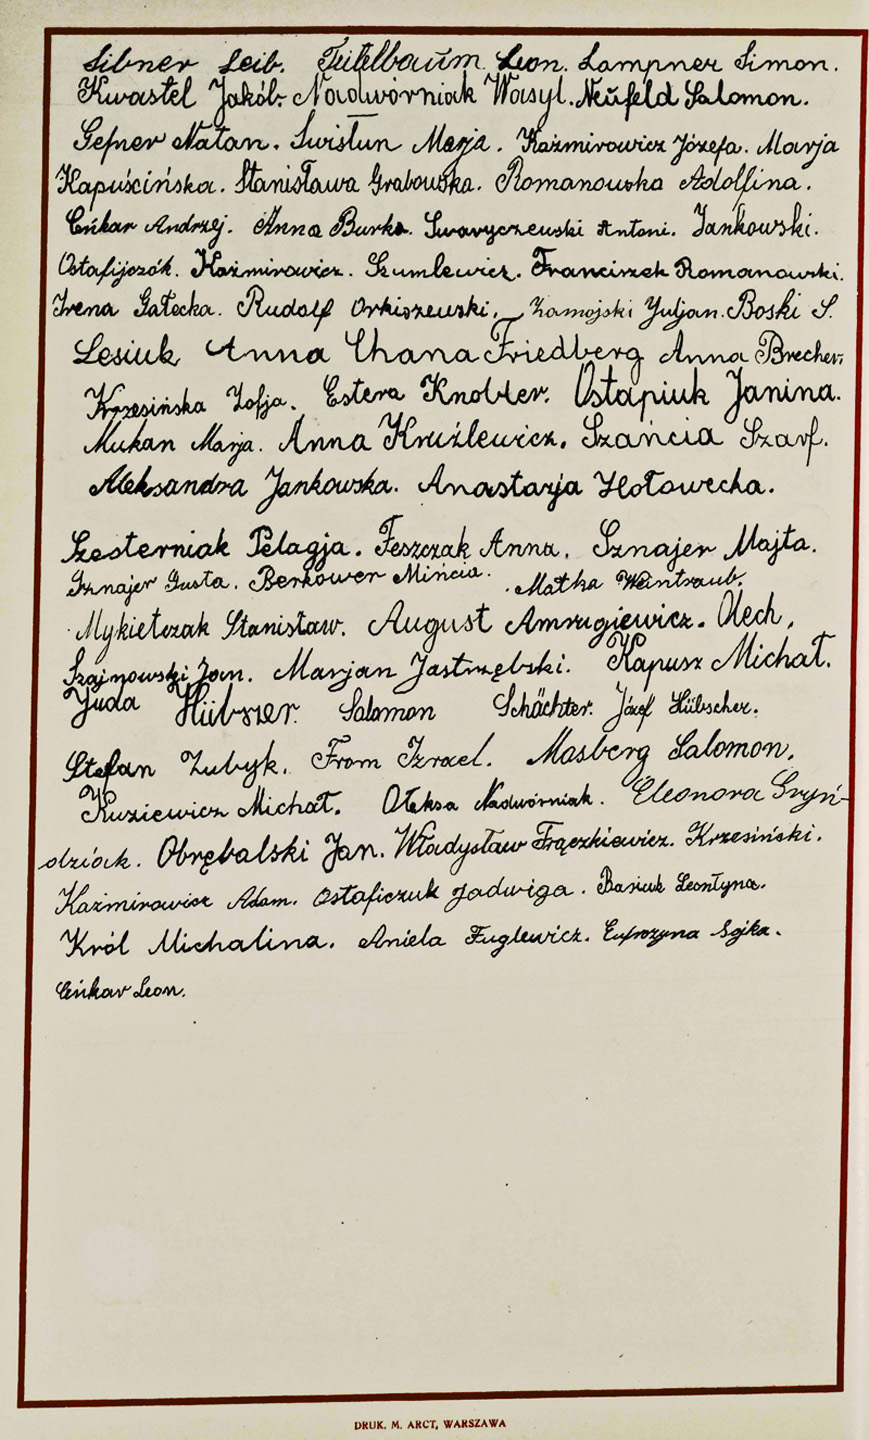 Libner Leib. Teitelbaum Leon. Lampner Simon.
Kwastel Jakób. Nadwórniak Wasyl. Neufeld Salomon.
Gefner Natan. Swistun Marja. Kaźmirowicz Józefa. Marja
Kapuścińska. Stanisława Grabowska. Romanowska Adolfina.
Ceńkar Andrzej. Anna Burka. Swaryczewski Antoni. Jankowski.
Ostafijczók. Kaźmirowicz. Szumlewicz. Franciszek Romanowski.
Irena Gałecka. Rudolf Orkiszewski. Zamojski Juljan. Boski S.
Lesiuk Anna Chana Friedberg Anna Brecher.
Krzesińska Zofja. Estera Knobler. Ostapiuk Janina.
Mukan Marja. Anna Kruźlewicz. Szańcia Szarf.
Aleksandra Jankowska. Anastazja Hołowecka.
Szesterniak Pelagja. Feszczak Anna. Sznajer Majta.
Sznajer Gusta. Berkower Mińcia. Matka Weintraub.
Mykietczak Stanisław. August Amrugiewicz. Olech.
Szajnowski Jan. Marjan Jastrzębski. Kapusz Michał.
Juda Hübszer. Salomon Schächter. Józef Hübscher.
Stefan Zubyk. From Izrael. Masberg Salomon.
Kuziewicz Michał. Ołeksa Nadwórniak. Eleonora Gryń-
dziók. Obrębalski Jan. Władysław Frączkiewicz. Krzesiński.
Kaźmirowicz Adam. Ostaficzuk Jadwiga. Basiuk Leontyna.
Król Michalina. Aniela Fuglewicz. Eufrozyna Sojka.
Ceńkar Leon.
DRUK. M. ARCT, WARSZAWA